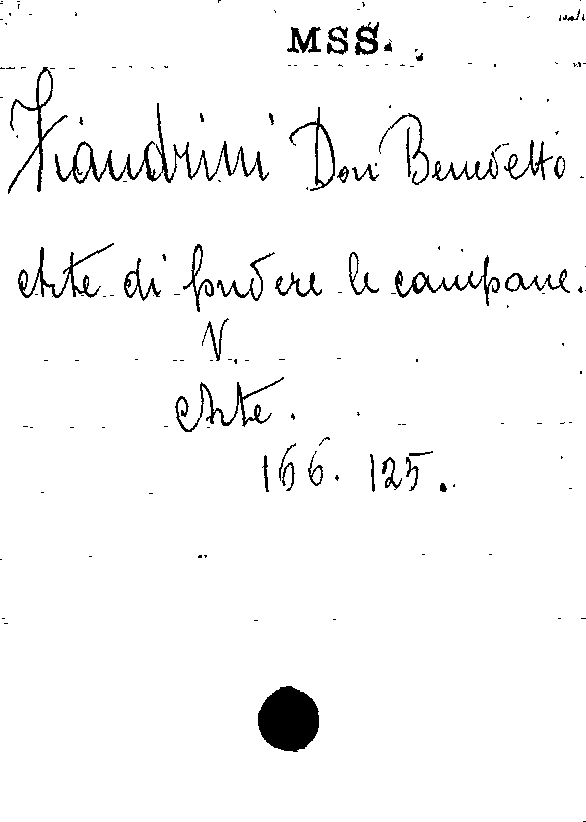 MSS.
Fiandrini Don Benedetto.
Arte di fondere le campane.
V.
Arte.
166. 125.